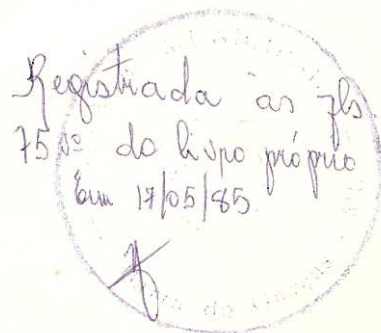 Registrada às fls
75 vº do livro próprio
Em 17/05/85